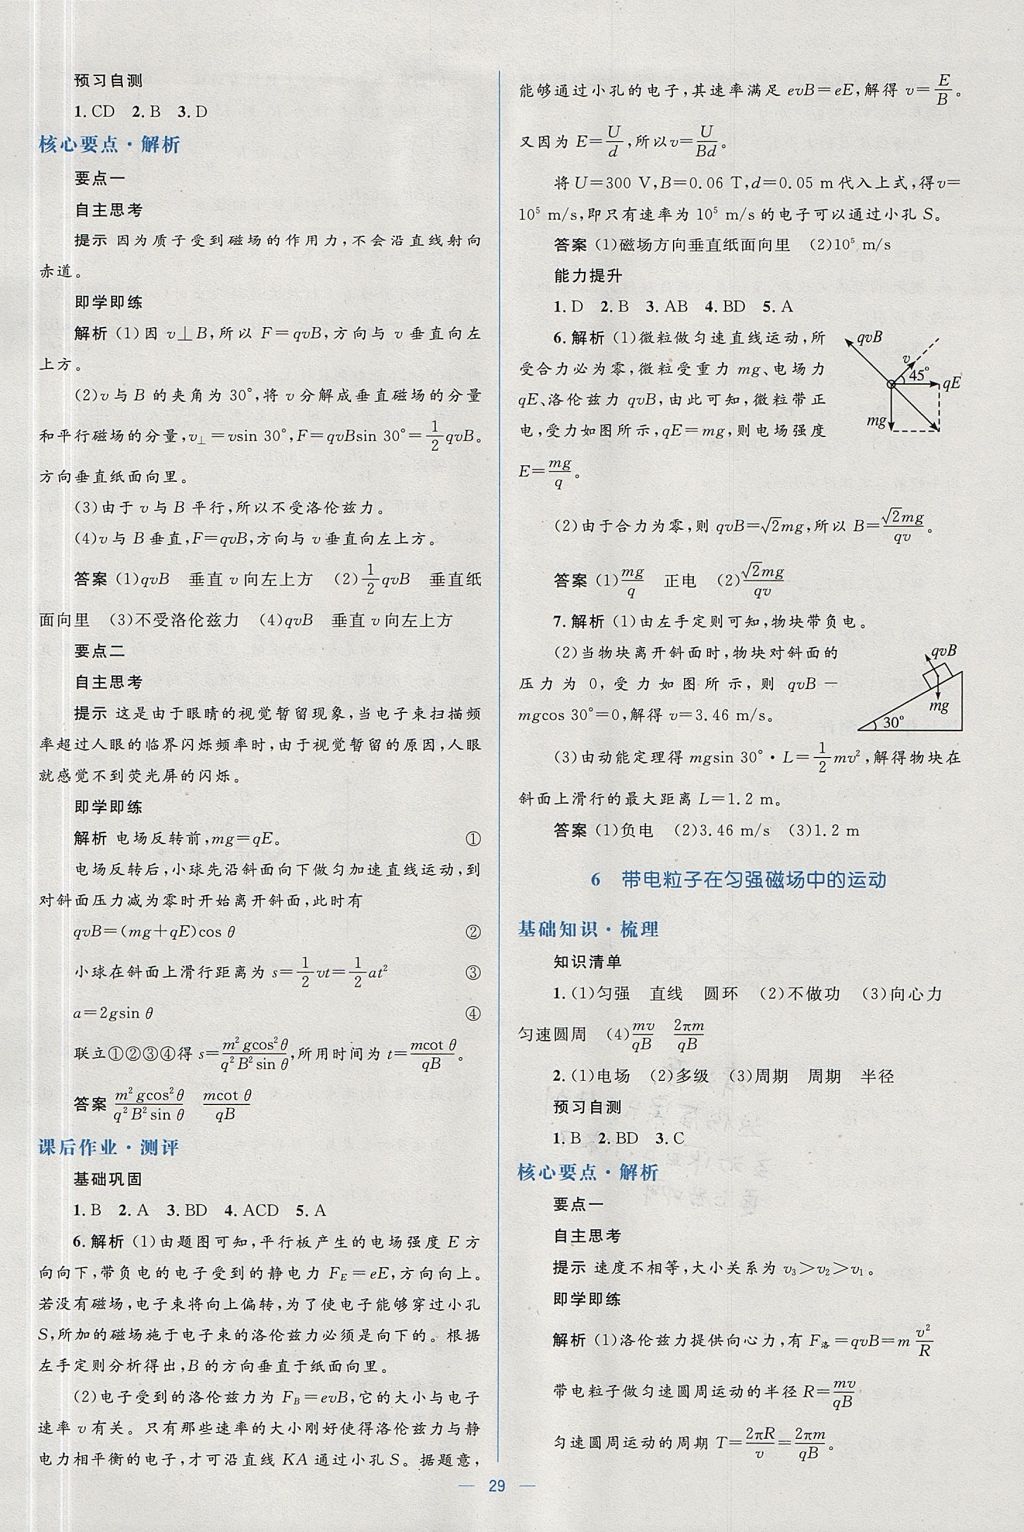 预习自测
1. CD 2. B 3. D
核心要点·解析
要点一
自主思考
提示 因为质子受到磁场的作用力,不会沿直线射向
赤道。
即学即练
解析 (1)因 v⊥B,所以 F=qvB,方向与 v 垂直向左
上方。
(2)v与 B 的夹角为30°,将 v分解成垂直磁场的分量
和平行磁场的分量,v⊥=vsin 30°,F=qvBsin 30°=1/2qvB。
方向垂直纸面向里。
(3)由于 v 与 B 平行,所以不受洛伦兹力。
(4)v与 B垂直,F=qvB,方向与v垂直向左上方。
答案 (1)qvB 垂直 v向左上方 (2)1/2qvB 垂直纸
面向里 (3)不受洛伦兹力 (4)qvB 垂直v向左上方
要点二
自主思考
提示 这是由于眼睛的视觉暂留现象,当电子束扫描频
率超过人眼的临界闪烁频率时,由于视觉暂留的原因,人眼
就感觉不到荧光屏的闪烁。
即学即练
解析 电场反转前,mg=qE。 ①
电场反转后,小球先沿斜面向下做匀加速直线运动,到
对斜面压力减为零时开始离开斜面,此时有
qvB=(mg+qE)cos θ ②
小球在斜面上滑行距离为 s=1/2vt=1/2at² ③
a=2gsin θ ④
联立①②③④得 s=m²gcos²θ/q²B²sin θ,所用时间为 t=mcot θ/qB。
答案 m²gcos²θ/q²B²sin θ mcot θ/qB
课后作业·测评
基础巩固
1. B 2. A 3. BD 4. ACD 5. A
6. 解析 (1)由题图可知,平行板产生的电场强度 E 方
向向下,带负电的电子受到的静电力 F_E=eE,方向向上。
若没有磁场,电子束将向上偏转,为了使电子能够穿过小孔
S,所加的磁场施于电子束的洛伦兹力必须是向下的。根据
左手定则分析得出,B的方向垂直于纸面向里。
(2)电子受到的洛伦兹力为 F_B=evB,它的大小与电子
速率 v有关。只有那些速率的大小刚好使得洛伦兹力与静
电力相平衡的电子,才可沿直线 KA 通过小孔 S。据题意,
能够通过小孔的电子,其速率满足 evB=eE,解得 v=E/B。
又因为 E=U/d,所以v=U/Bd。
将U=300 V,B=0.06 T,d=0.05 m代入上式,得v=
10⁵ m/s,即只有速率为 10⁵ m/s的电子可以通过小孔 S。
答案 (1)磁场方向垂直纸面向里 (2)10⁵ m/s
能力提升
1. D 2. B 3. AB 4. BD 5. A
6. 解析 (1)微粒做匀速直线运动,所
受合力必为零,微粒受重力 mg、电场力
qE、洛伦兹力 qvB,由此可知,微粒带正
电,受力如图所示,qE=mg,则电场强度
E=mg/q。
qvB
v
45°
qE
mg
(2)由于合力为零,则 qvB=√2mg,所以 B=√2mg/qv。
答案 (1)mg/q 正电 (2)√2mg/qv
7. 解析 (1)由左手定则可知,物块带负电。
(2)当物块离开斜面时,物块对斜面的
压力为 0,受力如图所示,则 qvB−
mgcos 30°=0,解得 v=3.46 m/s。
qvB
mg
30°
(3)由动能定理得 mgsin 30°·L=1/2mv²,解得物块在
斜面上滑行的最大距离 L=1.2 m。
答案 (1)负电 (2)3.46 m/s (3)1.2 m
6 带电粒子在匀强磁场中的运动
基础知识·梳理
知识清单
1. (1)匀强 直线 圆环 (2)不做功 (3)向心力
匀速圆周 (4)mv/qB 2πm/qB
2. (1)电场 (2)多级 (3)周期 周期 半径
预习自测
1. B 2. BD 3. C
核心要点·解析
要点一
自主思考
提示 速度不相等,大小关系为 v₃>v₂>v₁。
即学即练
解析 (1)洛伦兹力提供向心力,有 F洛=qvB=m v²/R
带电粒子做匀速圆周运动的半径 R=mv/qB
匀速圆周运动的周期 T=2πR/v=2πm/qB。
— 29 —